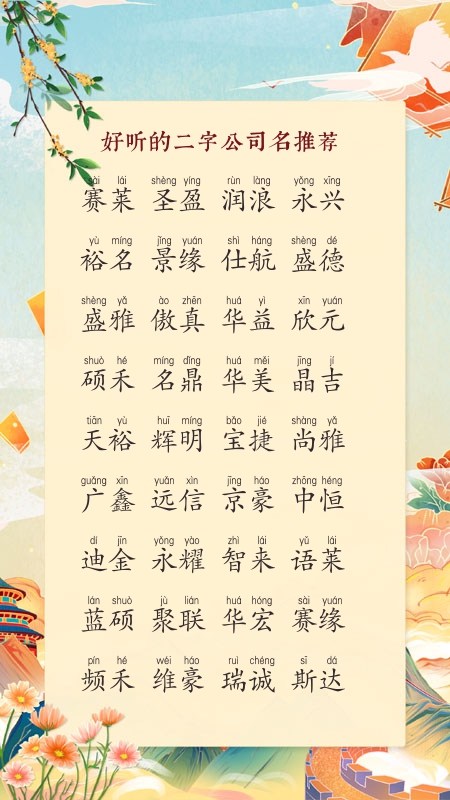 好听的二字公司名推荐
sài lái shèng yíng rùn làng yǒng xīng
赛莱 圣盈 润浪 永兴
yù míng jǐng yuán shì háng shèng dé
裕名 景缘 仕航 盛德
shèng yǎ ào zhēn huá yì xīn yuán
盛雅 傲真 华益 欣元
shuò hé míng dǐng huá měi jīng jí
硕禾 名鼎 华美 晶吉
tiān yù huī míng bǎo jié shàng yǎ
天裕 辉明 宝捷 尚雅
guǎng xīn yuǎn xìn jīng háo zhōng héng
广鑫 远信 京豪 中恒
dí jīn yǒng yào zhì lái yǔ lái
迪金 永耀 智来 语莱
lán shuò jù lián huá hóng sài yuán
蓝硕 聚联 华宏 赛缘
pín hé wéi háo ruì chéng sī dá
频禾 维豪 瑞诚 斯达